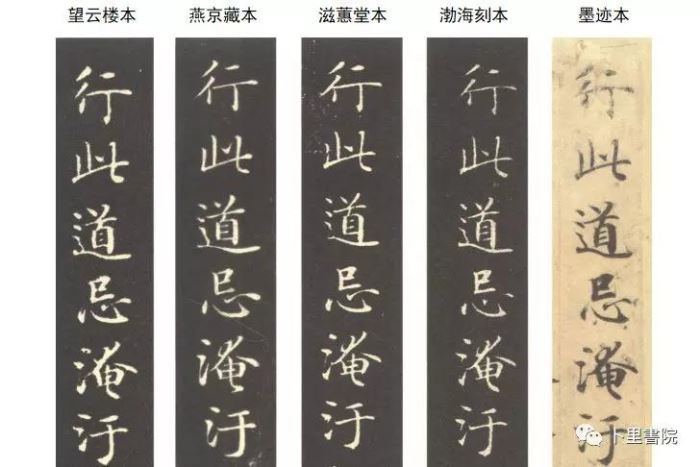 望云楼本 燕京藏本 滋蕙堂本 渤海刻本 墨迹本
行此道忌淹汙
行此道忌淹汙
行此道忌淹汙
行此道忌淹汙
行此道忌淹汙
卜里書院